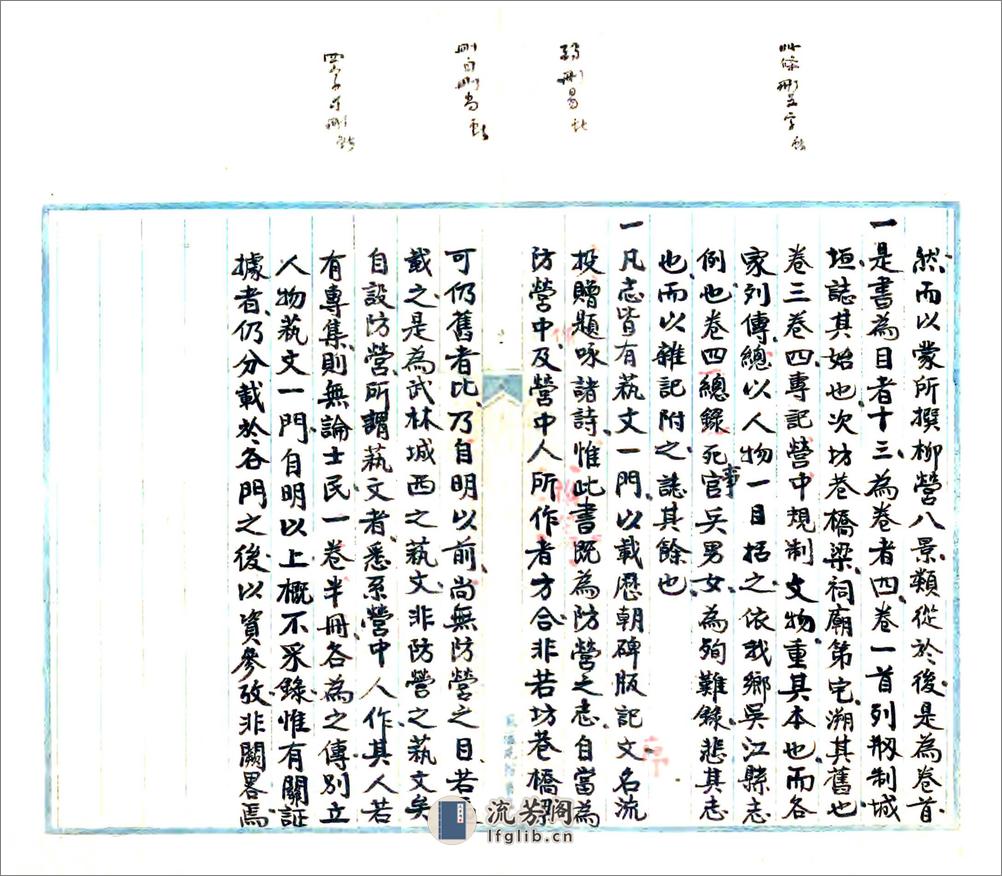 然而以蒙所撰柳營八景類從於後是為卷首
一是書為目者十三為卷者四卷一首列剏制城
垣誌其始也次坊巷橋梁祠廟第宅溯其舊也
卷三卷四專記營中規制文物重其本也而各
家列傳總以人物一目括之依我鄉吳江縣志
例也卷四總錄死事官兵男女為殉難錄悲其志
也而以雜記附之誌其餘也
一凡志皆有萟文一門以載歷朝碑版記文名流
投贈題咏諸詩惟此書既為防營之志自當為
防營中及營中人所作者方合非若坊巷橋
可仍舊者比乃自明以前尚無防營之目若
載之是為武林城西之萟文非防營之萟文矣
自設防營所謂萟文者悉系營中人作其人若
有專集則無論士民一卷半冊各為之傳別立
人物萟文一門自明以上概不采錄惟有關証
據者仍分載於各門之後以資參攷非闕畧焉
此條刪五字
流芳阁
lfglib.cn